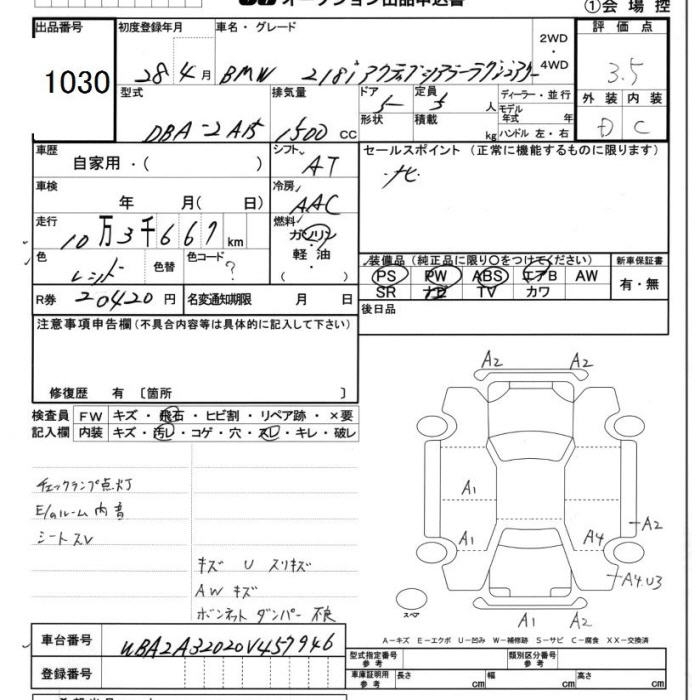 オークション出品申込書
①会場控
出品番号
1030
初度登録年月
28年4月
車名・グレード
BMW 218i アクティブツアラーラグジュアリー
2WD
・
4WD
評価点
3.5
外装 内装
D C
型式
DBA-2A15
排気量
1500 cc
ドア
5
形状
定員
5 人
積載
kg
ディーラー・並行
モデル年式 年
ハンドル 左・右
車歴
自家用・( )
シフト
AT
セールスポイント (正常に機能するものに限ります)
ナビ
車検
年 月( 日)
冷房
AAC
走行
10万3千667km
燃料
ガソリン
・
軽油
・
( )
色
レッド
色替
色コード
?
装備品 (純正品に限り○をつけてください)
PS PW ABS エアB AW
SR ナビ TV カワ
新車保証書
有・無
R券 20420円
名変通知期限 月 日
後日品
注意事項申告欄(不具合内容等は具体的に記入して下さい)
修復歴 有 〔箇所 〕
検査員
記入欄
FW キズ・飛石・ヒビ割・リペア跡・×要
内装 キズ・汚レ・コゲ・穴・スレ・キレ・破レ
チェックランプ点灯
E/gルーム内音
シートスレ
キズ U スリキズ
AWキズ
ボンネットダンパー不良
A2 A2
A1
A1 A4
A2
A4.U3
A1 A2
スペア
A-キズ E-エクボ U-凹み W-補修跡 S-サビ C-腐食 XX-交換済
車台番号
WBA2A32020V457946
登録番号
型式指定番号
参考
類別区分番号
参考
車庫証明用
参考
長さ cm
幅 cm
高さ cm